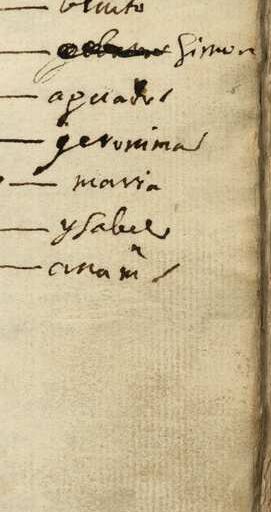 benito
simon
aguados
geronima
maria
ysabel
ana mª